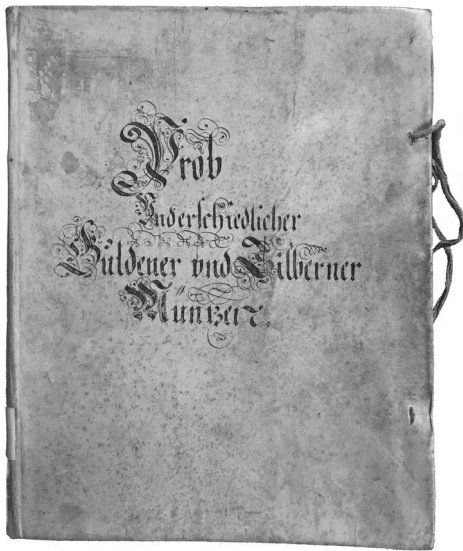 Prob
Vnderschiedlicher
Güldener vnd Silberner
Müntzen.